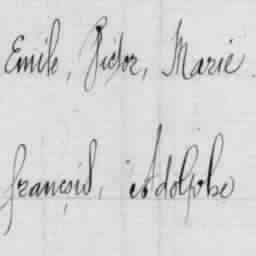 Emile, Victor, Marie.
François, Adolphe